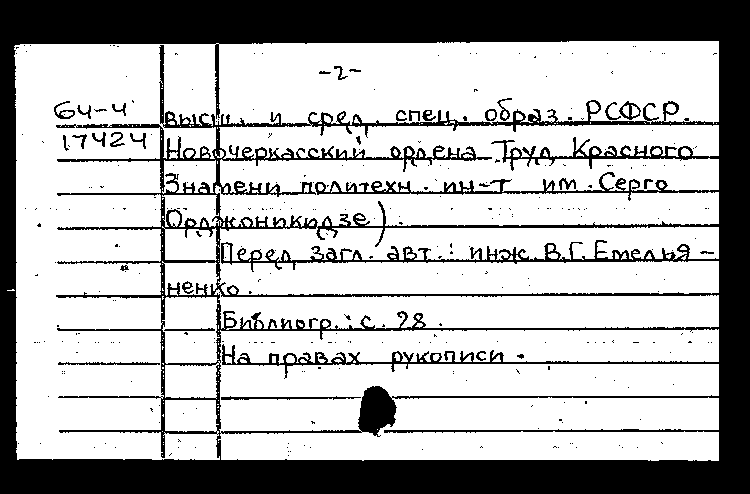 -2-
64-4
17424
высш. и сред. спец. образ. РСФСР.
Новочеркасский ордена Труд. Красного
Знамени политехн. ин-т им. Серго
Орджоникидзе).
Перед загл. авт.: инж. В.Г. Емелья-
ненко.
Библиогр.: с. 98.
На правах рукописи.